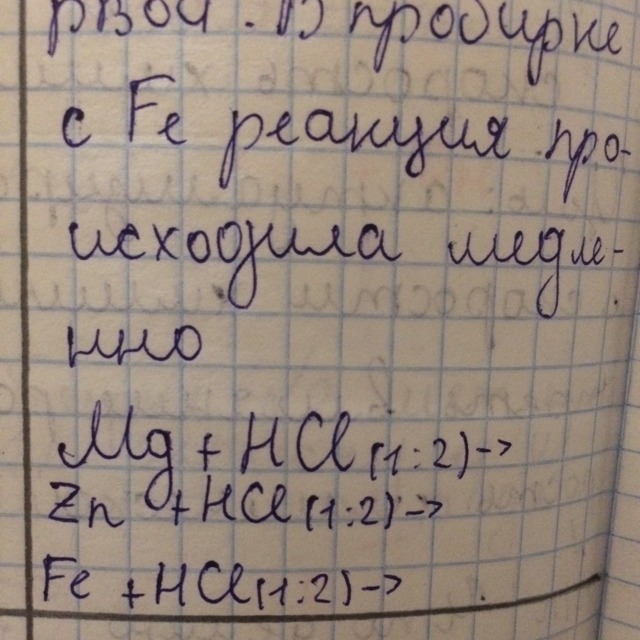 рвой. В пробирке
с Fe реакция про-
исходила медле-
нно
Mg + HCl (1:2) →
Zn + HCl (1:2) →
Fe + HCl (1:2) →